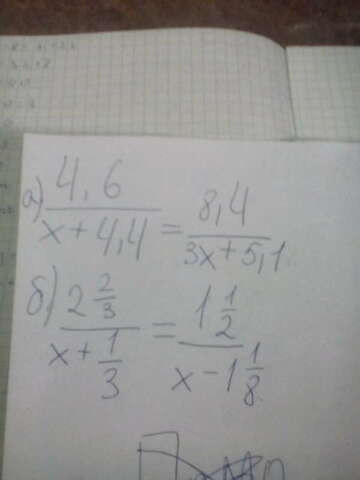 а) 4,6 / x + 4,4 = 8,4 / 3x + 5,1
б) 2 2/3 / x + 1/3 = 1 1/2 / x − 1 1/8